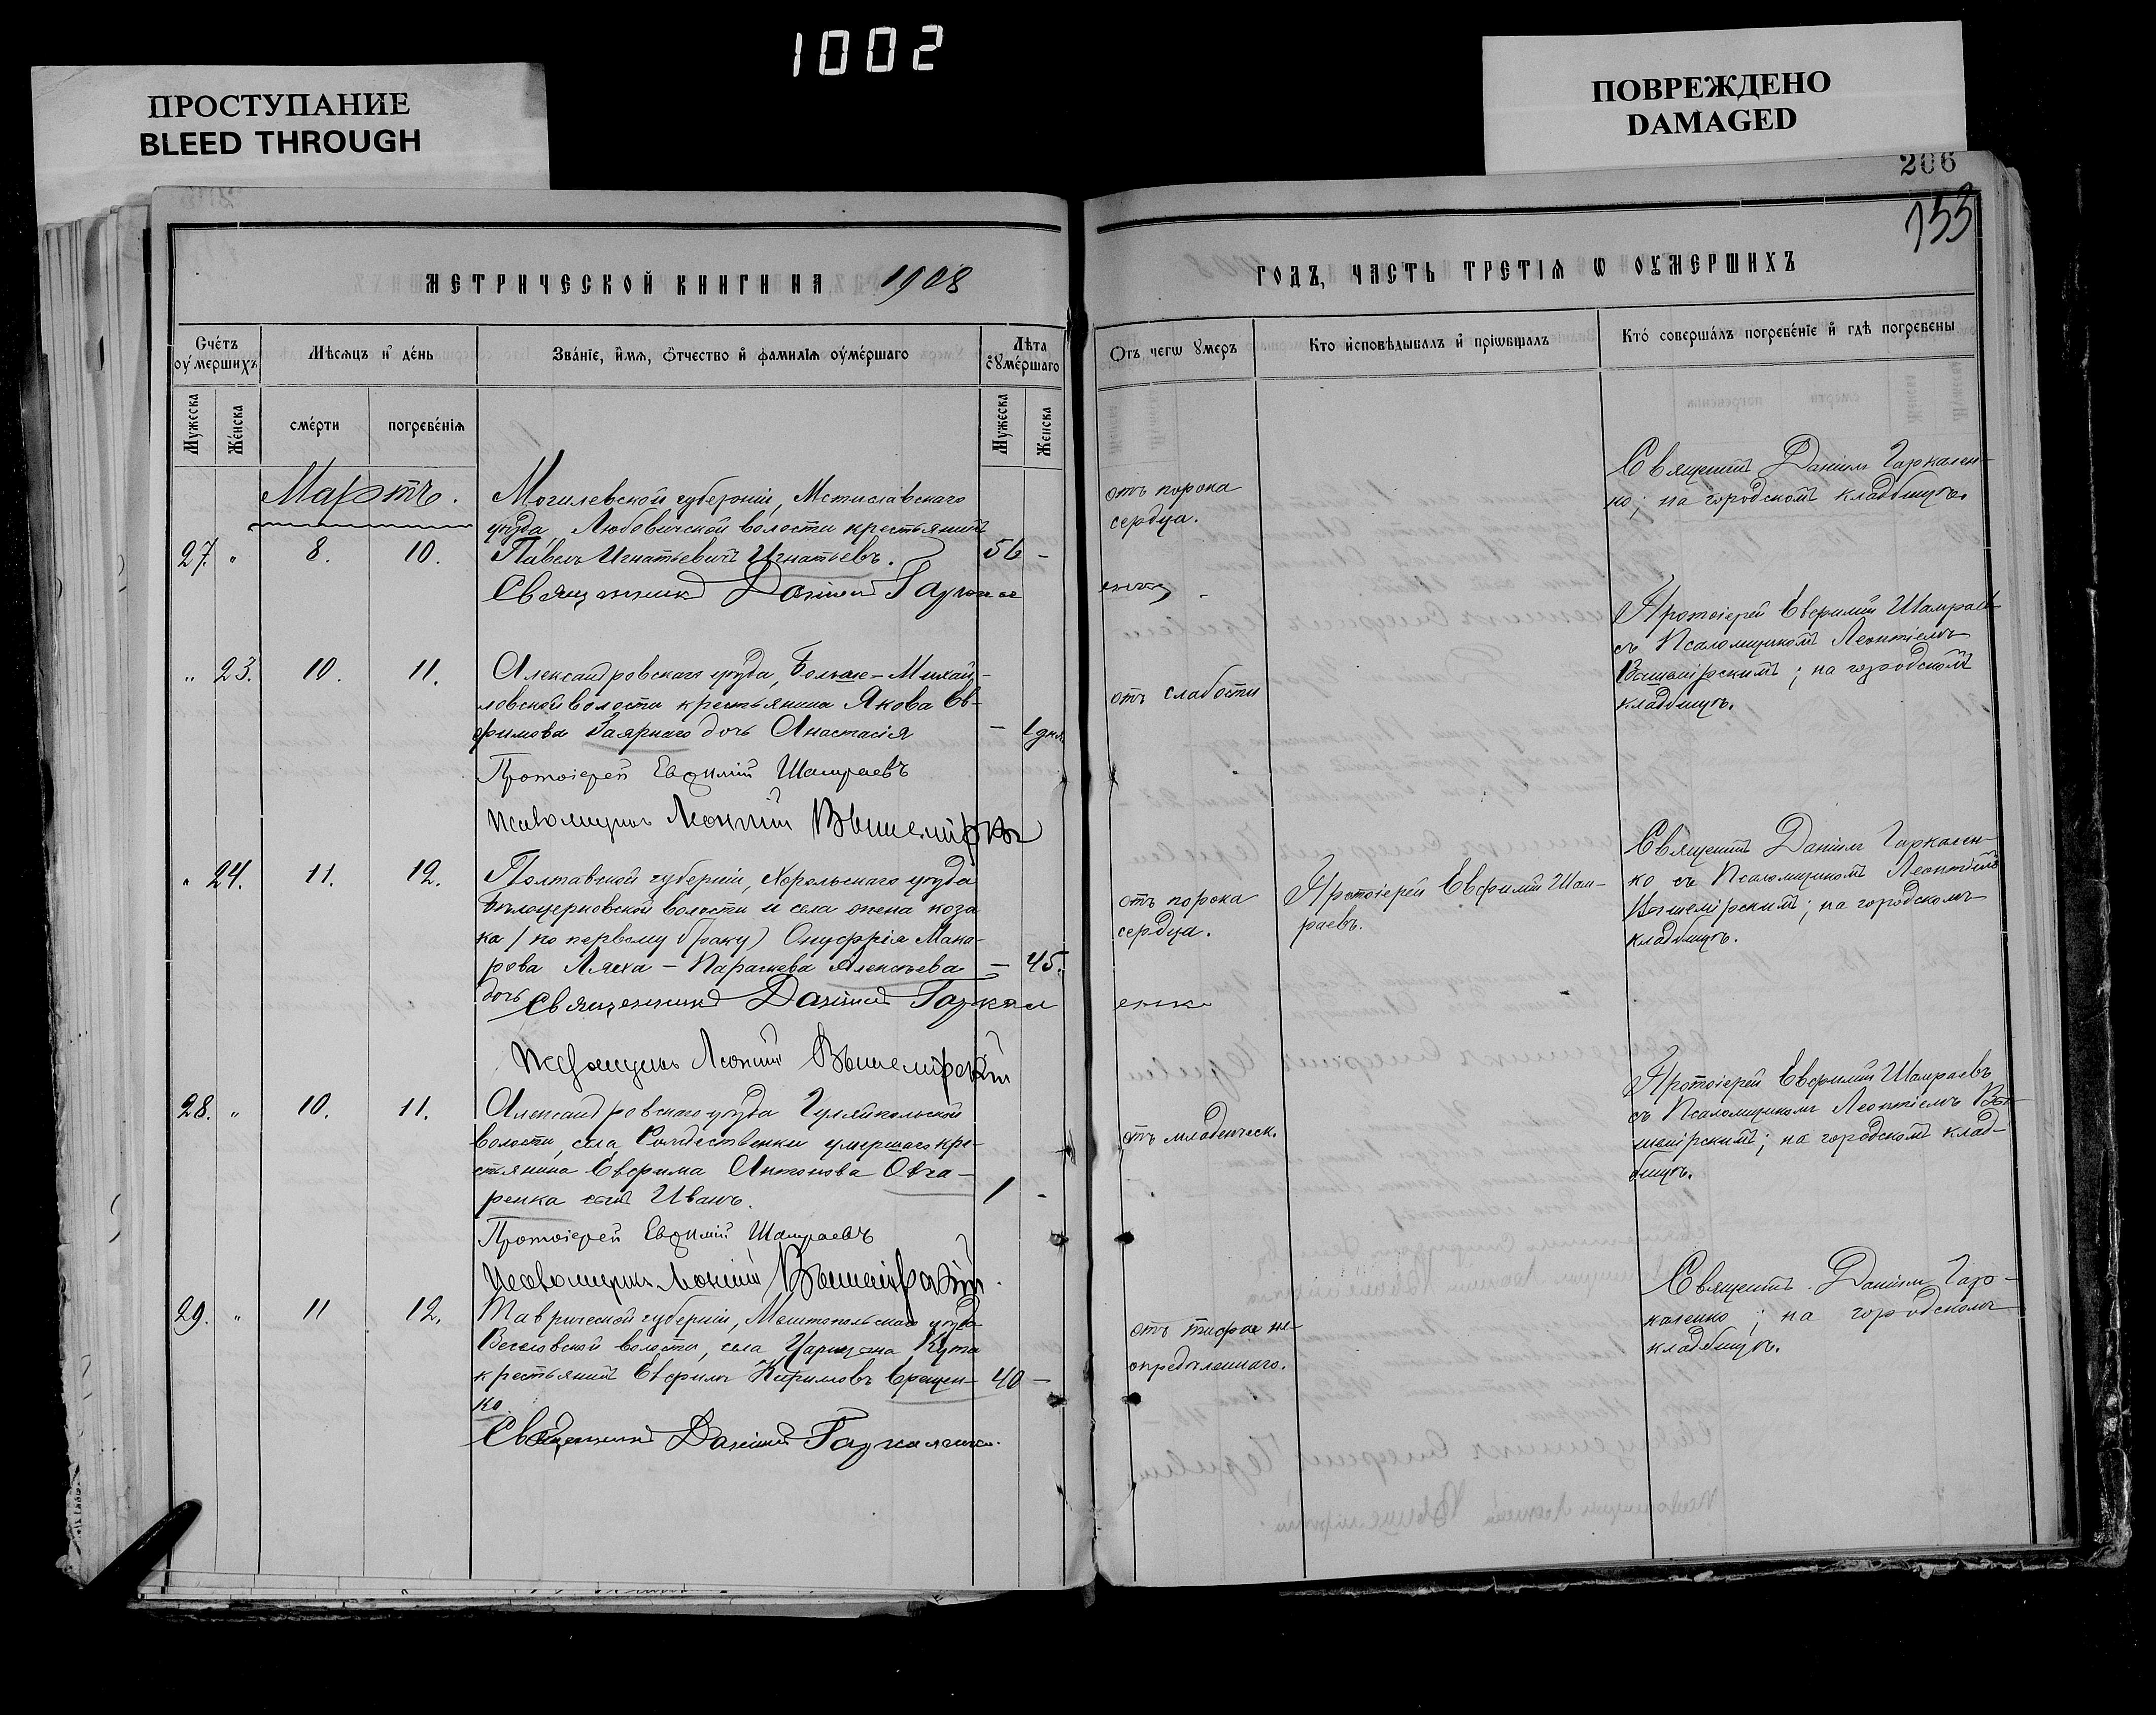 1002
ПРОСТУПАНИЕ
BLEED THROUGH
ПОВРЕЖДЕНО
DAMAGED
206
153
МЕТРИЧЕСКОЙ КНИГИ НА 1908
ГОДЪ, ЧАСТЬ ТРЕТІЯ Ѡ ОУМЕРШИХЪ
Счетъ оумершихъ
Мѣсяцъ и день
Званіе, имя, отчество и фамилія оумершаго
Лѣта оумершаго
Отъ чегѡ умеръ
Кто исповѣдывалъ и пріѡбщалъ
Кто совершалъ погребеніе и гдѣ погребены
Мужеска
Женска
смерти
погребенія
Мужеска
Женска
Мартъ.
Могилевской губерніи, Мстиславскаго
уѣзда, Любовичской волости крестьянинъ
27. " 8. 10. Павелъ Игнатьевичъ Игнатьевъ. 56 -
отъ порока
сердца.
Священникъ Даніилъ Гаркален-
ко; на городскомъ кладбищѣ.
Священникъ Даніилъ Гаркал
енко
" 23. 10. 11. Александровскаго уѣзда, Больше-Михай-
ловской волости крестьянина Якова Ев-
фимова Заярнаго дочь Анастасія - 1 дня
отъ слабости
Протоіерей Евфимій Шамраевъ
съ Псаломщикомъ Леонтіемъ
Вышемірскимъ; на городскомъ
кладбищѣ.
Протоіерей Евфимій Шамраевъ
Псаломщикъ Леонтій Вышемірскій
" 24. 11. 12. Полтавской губерніи, Хорольскаго уѣзда
Бѣлоцерковской волости и села жена коза-
ка (по первому браку) Онуфрія Мака-
рова Ляха - Параскева Алексѣева - 45.
дочь
отъ порока
сердца.
Протоіерей Евфимій Шам-
раевъ.
Священникъ Даніилъ Гаркален-
ко съ Псаломщикомъ Леонтіемъ
Вышемірскимъ; на городскомъ
кладбищѣ.
Священникъ Даніилъ Гаркал
енко
Псаломщикъ Леонтій Вышемірскій
28. " 10. 11. Александровскаго уѣзда Гуляйпольской
волости, села Рождественки умершаго кре-
стьянина Евфима Антонова Овча-
ренка сынъ Иванъ. 1 -
отъ младенческ.
Протоіерей Евфимій Шамраевъ
съ Псаломщикомъ Леонтіемъ Вы-
шемірскимъ; на городскомъ клад-
бищѣ.
Протоіерей Евфимій Шамраевъ
Псаломщикъ Леонтій Вышемірскій.
29. " 11 12. Таврической губерніи, Мелитопольскаго уѣзда
Веселовской волости, села Царицына Кута
крестьянинъ Евфимъ Кириловъ Ерещен- 40 -
ко.
отъ тифа не-
опредѣленнаго.
Священникъ Даніилъ Гар-
каленко; на городскомъ
кладбищѣ.
Священникъ Даніилъ Гаркаленко.